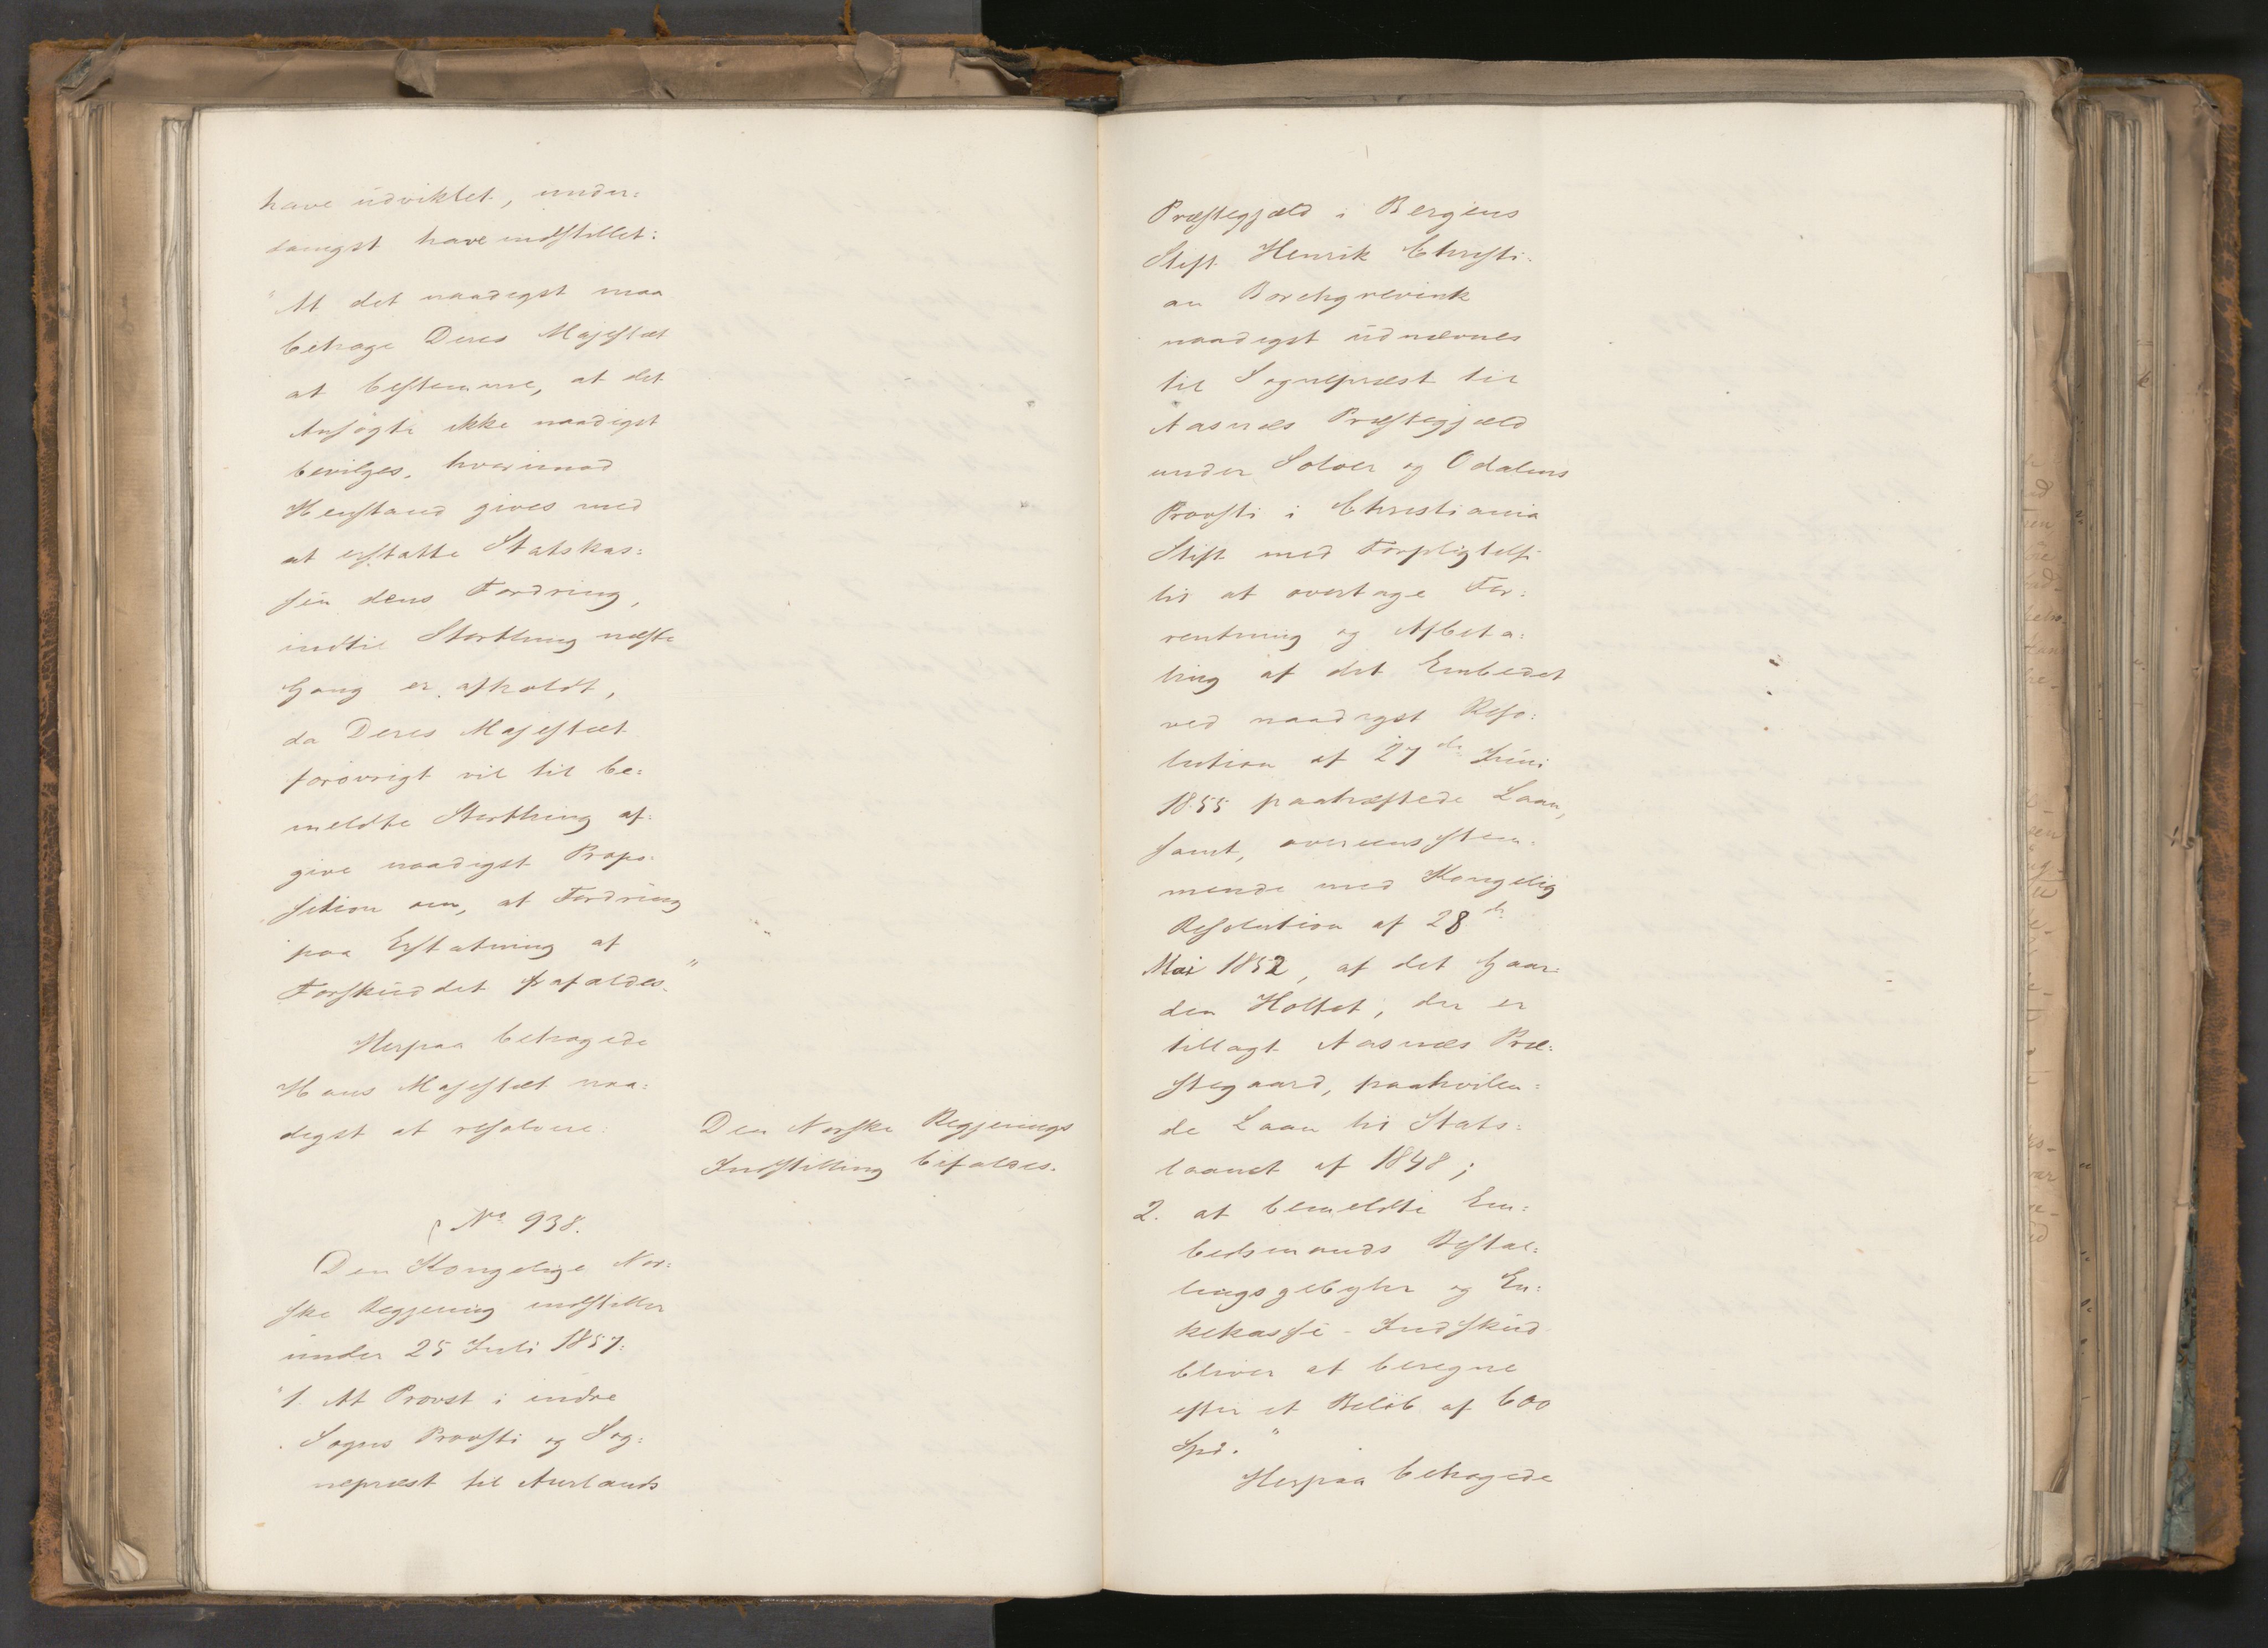 have udviklet, under:
danigst have indstillet:
"At det naadigst maa
behage Deres Majestæt
at bestemme, at det
Ansøgte ikke naadigst
bevilges, hvorimod
Henstand gives med
at erstatte Statskas:
sen dens Fordring,
indtil Storthing næste
Gang er afholdt,
da Deres Majestæt
forøvrigt vil til be:
meldte Storthing af:
give naadigst Propo:
sition om, at Fordring
paa Erstatning af
Forskuddet frafaldes."
Herpaa behagede
Hans Majestæt naa:
digst at resolvere:
Den Norske Regjerings
Indstilling bifaldes.
No 938.
Den Kongelige Nor:
ske Regjering indstiller
under 25 Juli 1857:
"1. At Provst i indre
Sogns Provsti og Sog:
nepræst til Aurlands
Præstegjæld i Bergens
Stift Henrik Christi:
an Borchgrevink
naadigst udnævnes
til Sognepræst til
Aasnæs Præstegjæld
under Soløer og Odalens
Provsti i Christiania
Stift med Forpligtelse
til at overtage For:
rentning og Afbeta:
ling af det Embedet
ved naadigst Reso:
lution af 27de Juni
1855 paahæftede Laan,
samt, overeensstem:
mende med Kongelig
Resolution af 28de
Mai 1852, af det Gaar:
den Holtet, der er
tillagt Aasnæs Præ:
stegaard, paahvilen:
de Laan til Stats:
laanet af 1848;
2. at bemeldte Em:
bedsmands Bestal:
lingsgebyhr og En:
kekasse-Indskud
bliver at beregne
efter et Beløb af 600
Spd."
Herpaa behagede